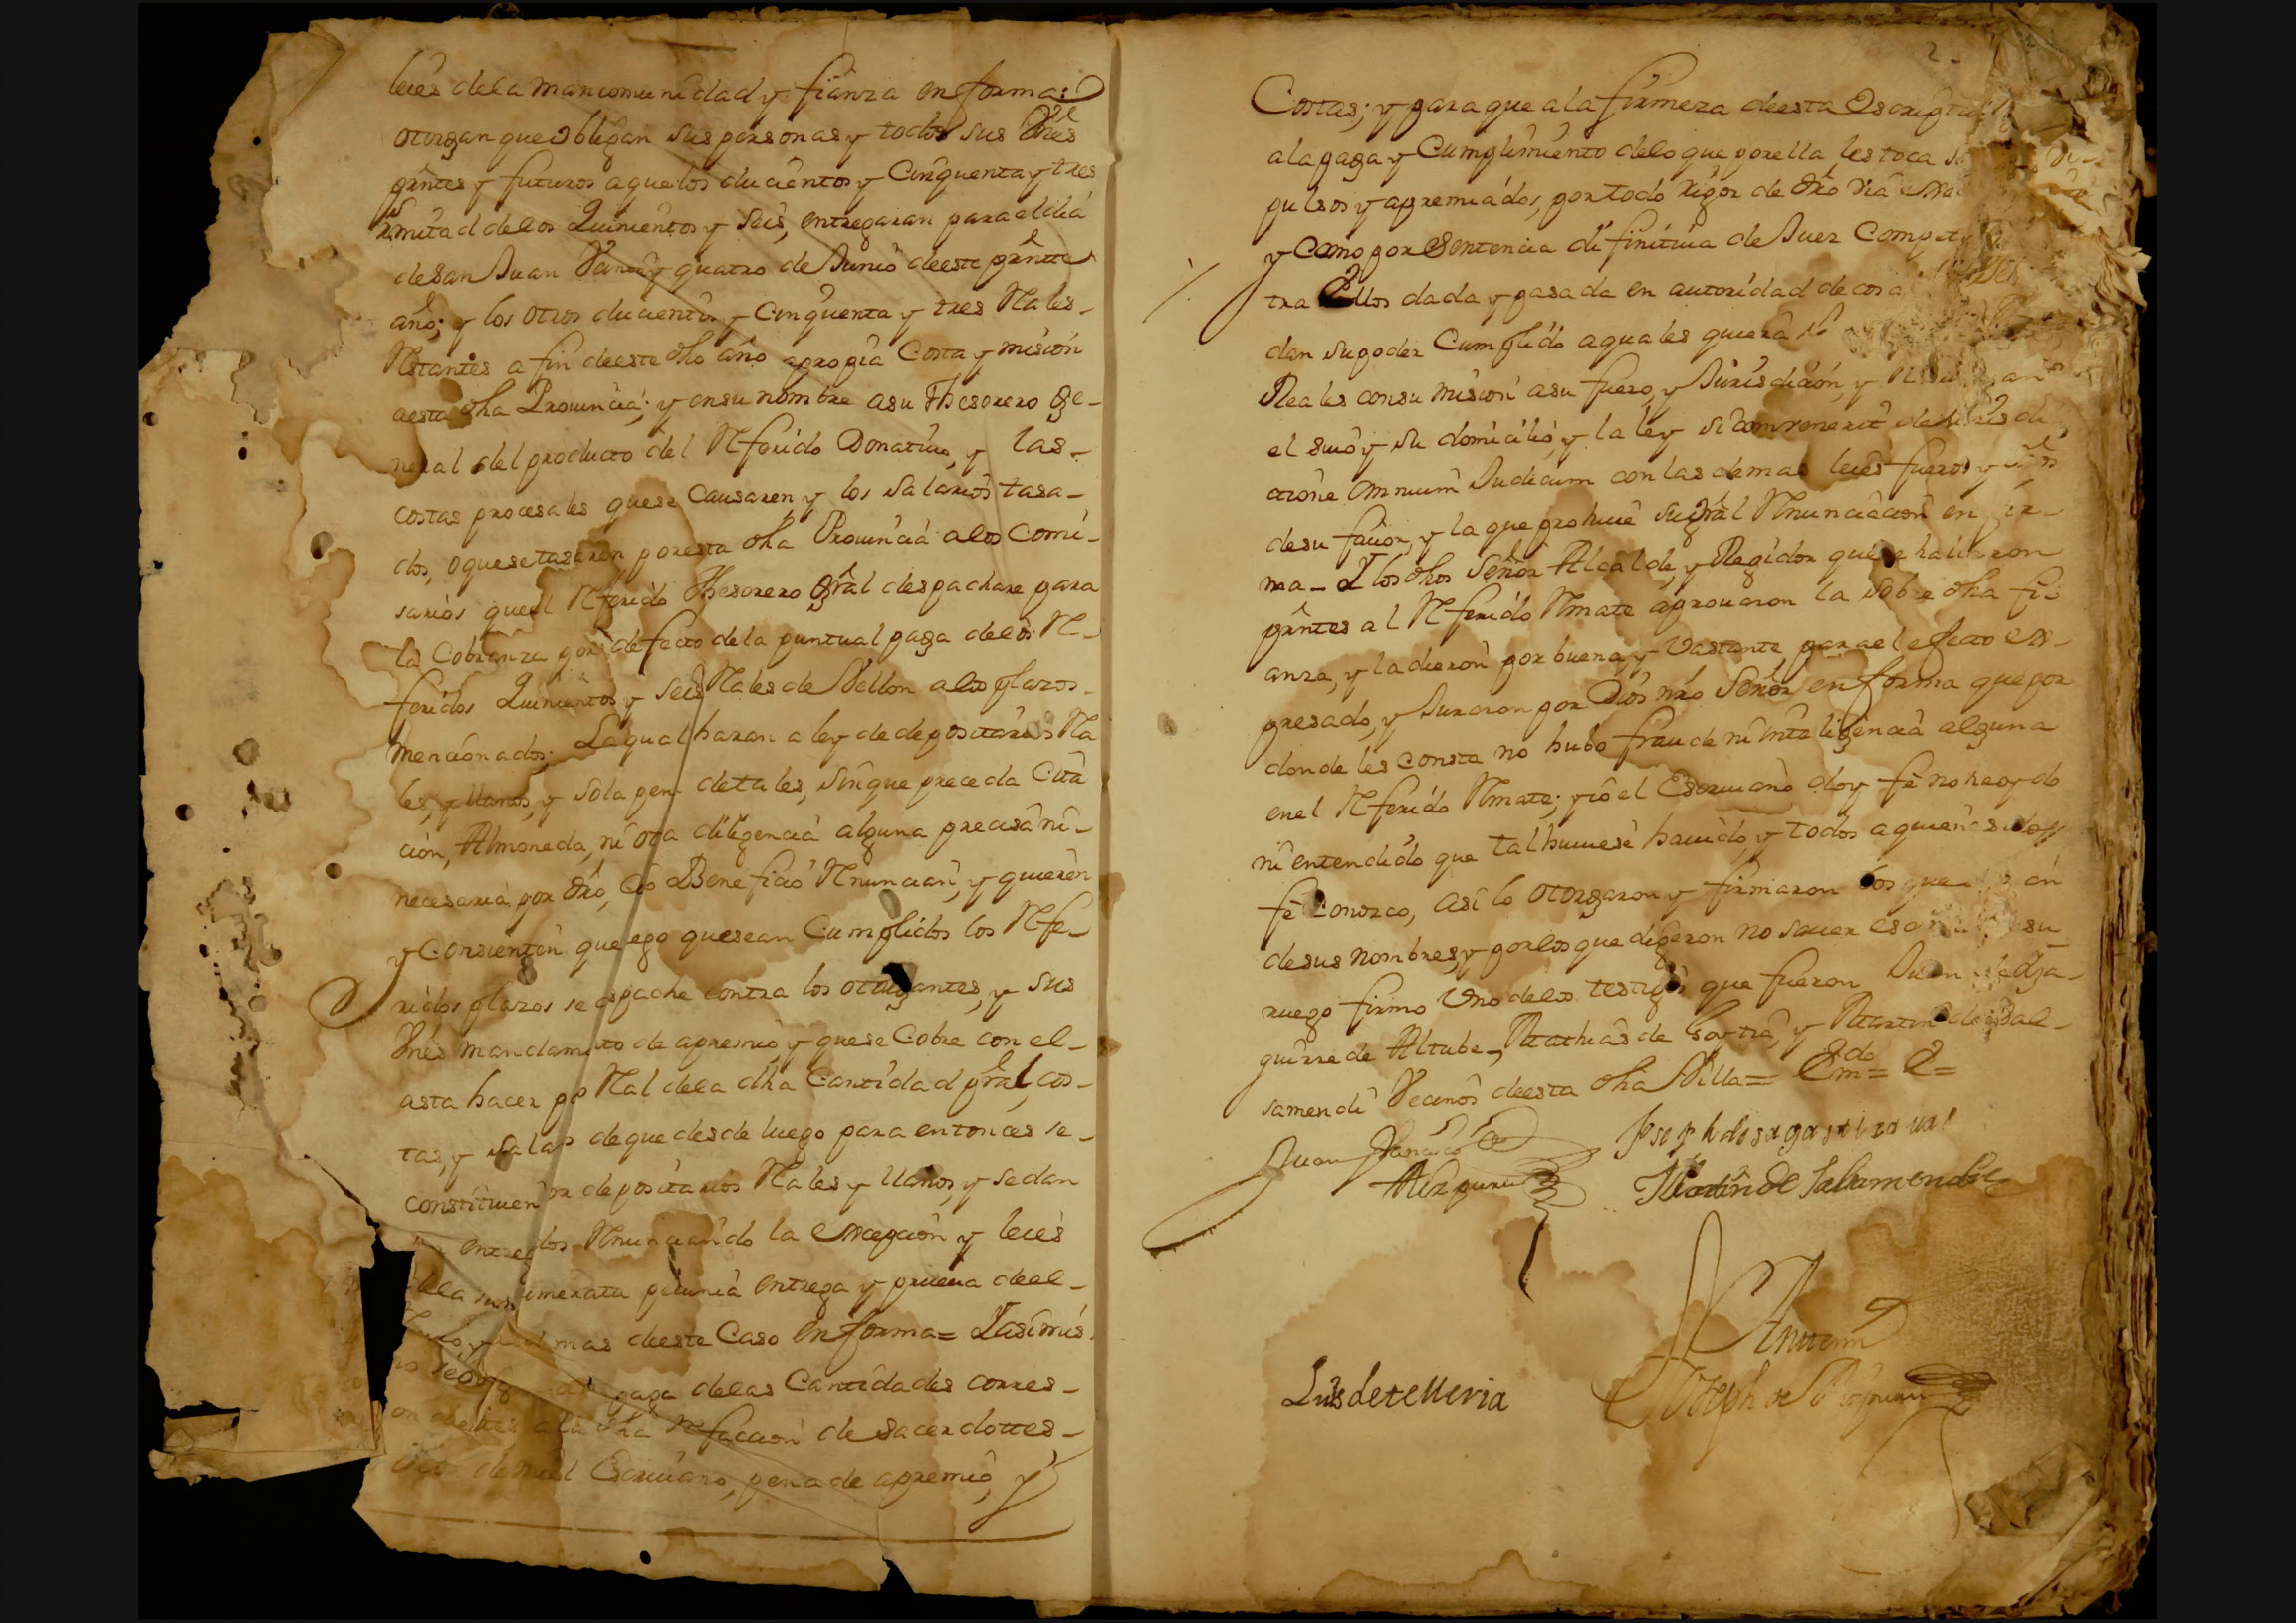 leies dela mancomunidad y fianza en forma:
otorgan que obligan sus personas y todos sus vnes
prntes y futuros a que los ducientos y Cinquenta y tres
Rs mitad delos Quinientos y Seis, entregaran para el dia
de San Juan Veinte y quatro de Junio deeste prntte
año; y los otros ducientos y Cinquenta y tres Rales
Restantes a fin deeste dho año a propia Costa y mision
aesta dha Prouincia; y en su nombre a su Thesorero Ge-
neral del producto del Referido Donatiuo, y las-
costas procesales que se Causaren y los Salarios tasa-
dos, o que se tasaren por esta dha Prouincia a los Comi-
sarios que el Referido Thesorero Gral despachare para
la Cobranza por defecto de la puntual paga delos Re-
feridos Quinientos y Seis Rales de Vellon alos plazos
mencionados; La qual haran a ley de depositarios Rea
les, y llanos, y Sola pena de tales, Sin que preceda Cita
cion, Almoneda, ni otra diligencia alguna precisa ni-
necesaria por dro, Cuio Beneficio Renuncian, y quieren
y Consienten que luego que sean Cumplidos los Refe-
ridos plazos se despache contra los otorgantes, y sus
Vnes mandamiento de apremio, y que se Cobre con el-
asta hacer pago Real dela dha Cantidad pral, cos-
tas, y Salarios de que desde luego para entonces se-
constituien por depositarios Rales y llanos, y se dan
por entregados Renunciando la excepcion y leies
dela non numerata pecunia entrega y prueua deel-
y demas deeste Caso en forma= Y asimis
paga delas Cantidades corres-
pondientes a la dha Refaccion de Sacerdottes-
de mi el Escriuano, pena de apremio, y
2
Costas; y para que a la firmeza deesta Escriptu
a la paga y Cumplimiento delo que por ella les toca
pulsos y apremiados, por todo Rigor de dro via
y Como por Sentencia difinitiua de Juez Compet
tra Ellos dada y pasada en autoridad de cosa
dan su poder Cumplido a quales quiera
Reales con su mision a su fuero, y Jurisdicion, y
el suio y su domicilio, y la ley si combenerit de Jurisdi
ctione Omnium Judicum con las demas leies fueros y
de su fauor, y la que prohiue su gral Renunciacion en for-
ma- Y los dhos Señor Alcalde, y Regidor que se hallaron
prntes al Referido Remate aprouaron la Sobre dha fi-
anza, y la dieron por buena y Vastante para el efecto ex-
presado, y Juraron por Dios nro Señor en forma que por
donde les conste no hubo fraude ni inteligencia alguna
en el Referido Remate; y io el Escriuano doy fè no he oydo
ni entendido que tal huuiese hauido, y todos a quienes doy
fè Conozco, asi lo otorgaron y firmaron los que
de sus nombres, y por los que digeron no sauer escriuir a su
ruego firmo Vno delos testigos que fueron Juan de Iza-
guirre de Altube, Mathias de Gortia, y Martin de Sal-
samendi Vecinos deesta dha Villa= Em.do= E=
Juan Francisco de
Aizpuru
Joseph de sagastizaual
Martin de Salsamendi
Ante mi
Luis de telleria
Joseph de